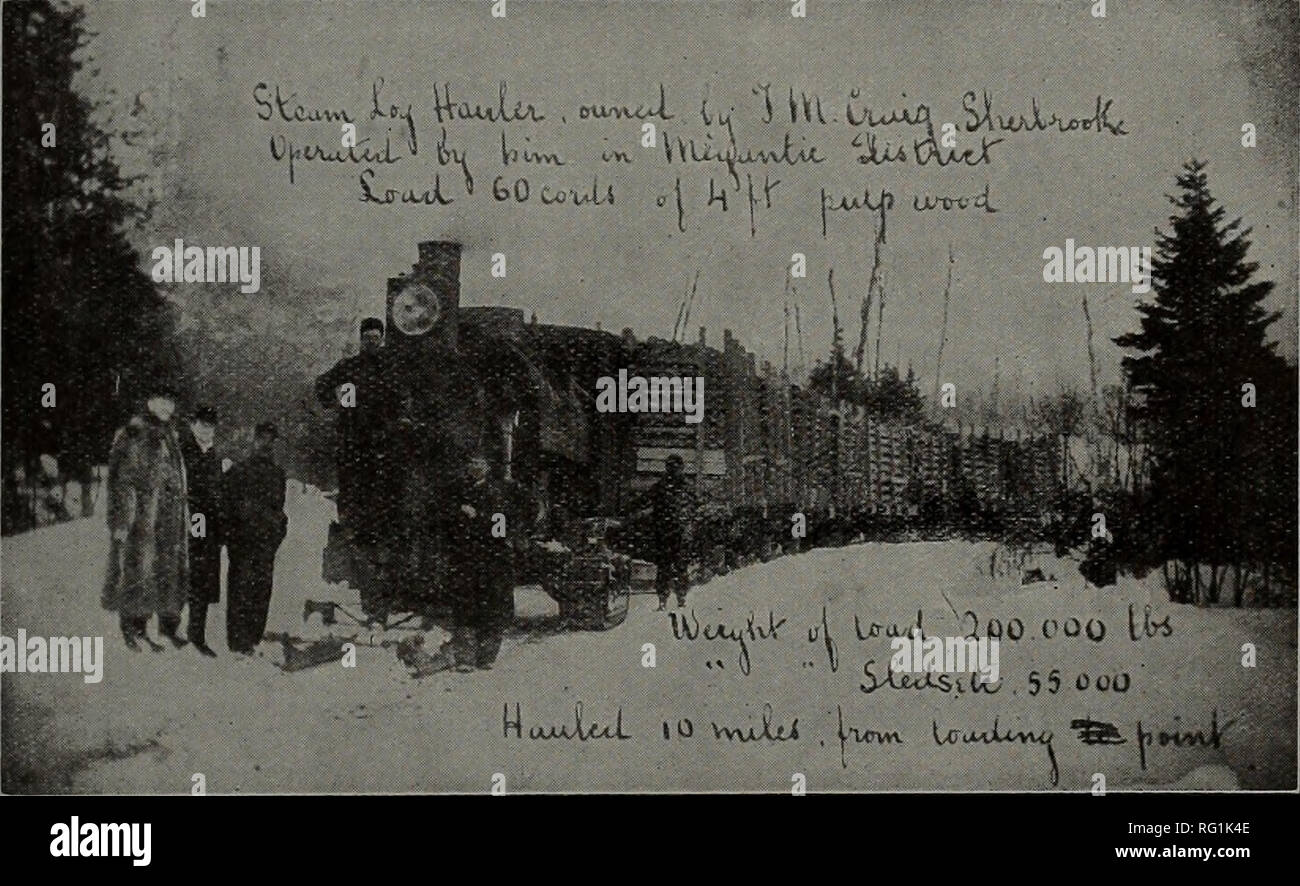 Steam Log Hauler, owned by T M. Craig, Sherbrooke
Operated by him in Megantic District
Load 60 cords of 4 ft pulp wood
Weight of load 200.000 lbs
" " Sleds &c. 55 000
Hauled 10 miles, from loading point
a
a
a
a
alamy
alamy
alamy
alamy
alamy
alamy
Image ID: RG1K4E
www.alamy.com